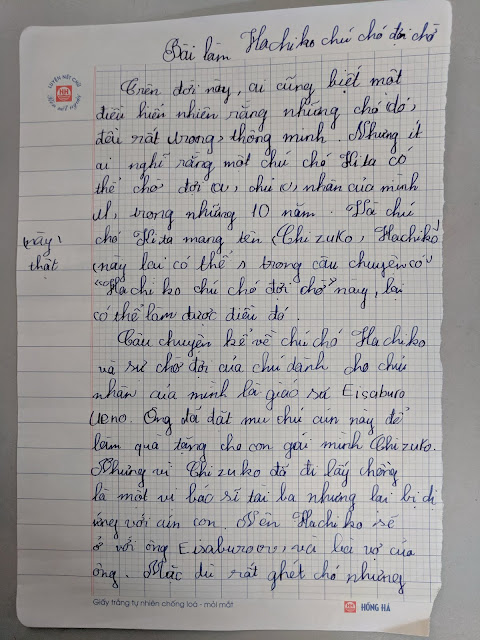 Bài làm Hachiko chú chó đợi chờ
LUYỆN NÉT CHỮ
Rèn nết người
HH
Trên đời này, ai cũng biết một
điều hiển nhiên rằng những chó đó,
đều rất trung, thông minh. Nhưng ít
ai nghĩ rằng một chú chó Hita có
thể chờ đợi chủ nhân của mình
trong những 10 năm. Và chú
chó Hita mang tên Chizuko, Hachiko
này lại có thể trong câu chuyện có
này thật
"Hachiko chú chó đời chờ" nay, lại
có thể làm được điều đó.
Câu chuyện kể về chú chó Hachiko
và sự chờ đợi của chú dành cho chủ
nhân của mình là giáo sư Eisaburo
Ueno. Ông đã đặt mu chú cún này để
làm quà tặng cho con gái mình Chizuko.
Nhưng vì Chizuko đã đi lấy chồng
là một vị bác sĩ tài ba nhưng lại bị dị
ứng với cún con. Nên Hachiko sẽ
ở với ông Eisaburo và bà vợ của
ông. Mặc dù rất ghét chó nhưng
Giấy trắng tự nhiên chống loá - mỏi mắt
HH HỒNG HÀ